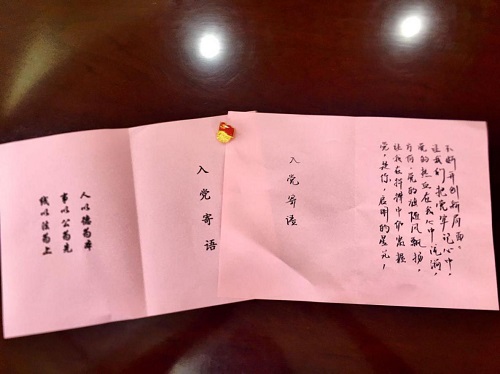 入党寄语
人以德為本
事以公為先
以法為上
入党寄语
党，是你，启明的星光，
让我在拼搏中有发展
方向，党的旗随风飘扬，
党的热血在我心中流淌，
让我们把党牢记心中，
不断开创新局面。